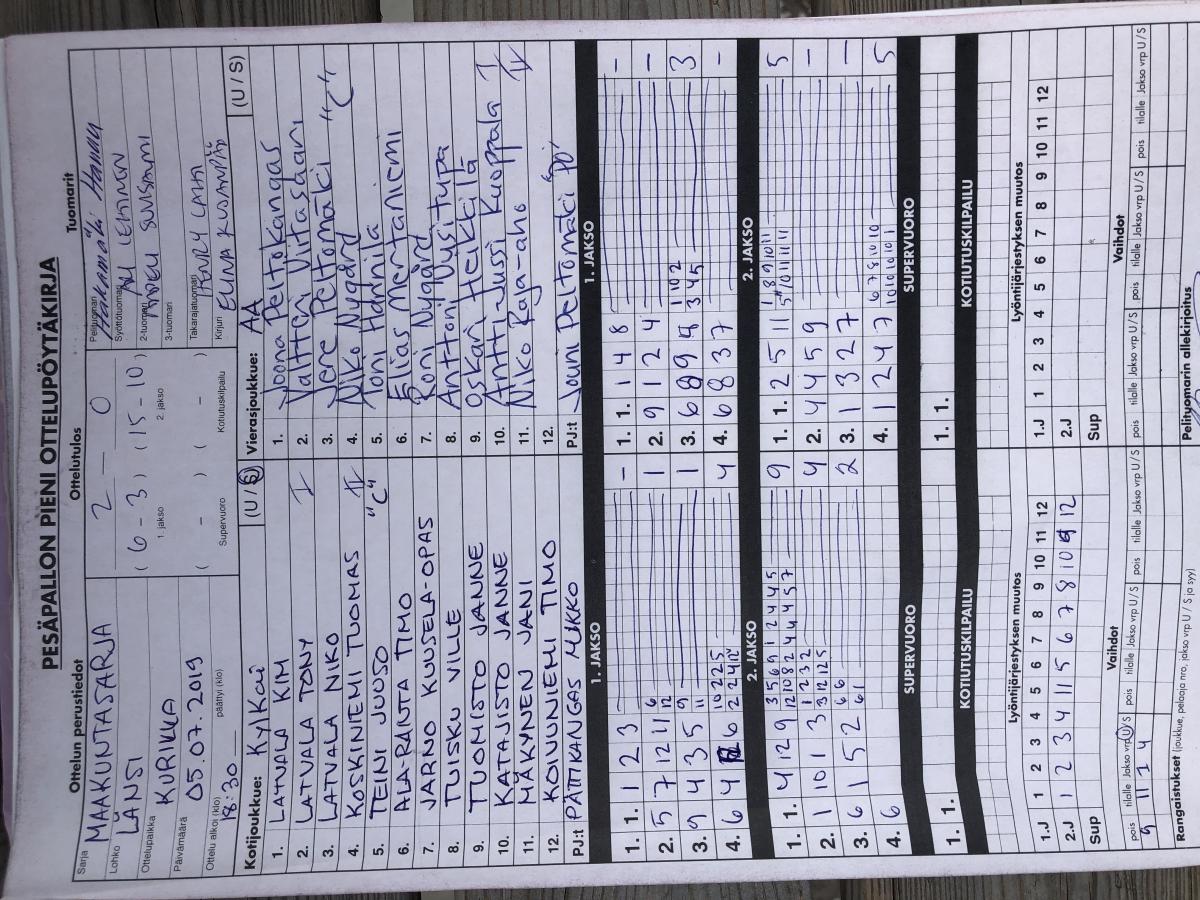 PESÄPALLON PIENI OTTELUPÖYTÄKIRJA
Ottelun perustiedot
Sarja MAAKUNTASARJA
Lohko LÄNSI
Ottelupaikka KURIKKA
Päivämäärä 05.07.2019
Ottelu alkoi (klo) 18:30 päättyi (klo)
Ottelutulos
2 – 0
( 6 – 3 ) ( 15 – 10 )
1. jakso 2. jakso
( – ) ( – )
Supervuoro Kotiutuskilpailu
Tuomarit
Pelituomari Hakamäki Hannu
Syöttötuomari LEHTINEN
2-tuomari SUUSSALMI
3-tuomari
Takarajatuomari HENRY LAHTI
Kirjuri ELINA
Kotijoukkue: KylKai (U / S)
1. LATVALA KIM
2. LATVALA TONY I
3. LATVALA NIKO
4. KOSKINIEMI TUOMAS II
5. TEINI JUUSO "C"
6. ALA-RANTA TIMO
7. JARNO KUUSELA-OPAS
8. TUISKU VILLE
9. TUOMISTO JANNE
10. KATAJISTO JANNE
11. MÄKYNEN JANI
12. KOIVUNIEMI TIMO
PJ:t PÄTTIKANGAS MIKKO
Vierasjoukkue: AA (U / S)
1. Joona Peltokangas
2. Valtteri Viitasaari
3. Jere Peltomäki "C"
4. Niko Nygård
5. Toni Hannila
6. Elias Mertaniemi
7. Roni Nygård
8. Anttoni Uusitupa
9. Oskari Heikkilä
10. Antti-Jussi Kuoppala I
11. Niko Raja-aho II
12.
PJ:t Jouni Peltomäki
1. JAKSO
1. 1. 1 2 3 –
2. 5 7 12 11 6 12 1
3. 9 4 3 5 9 11 1
4. 6 4 6 10 2 2 5 2 2 4 12 4
1. JAKSO
1. 1. 1 4 8 –
2. 9 1 2 4 –
3. 6 8 9 9 1 10 2 3 4 5 3
4. 6 8 3 7 –
2. JAKSO
1. 1. 4 12 9 3 5 6 9 1 2 4 4 5 12 10 8 2 4 4 4 5 7 9
2. 1 10 1 3 1 2 3 2 3 12 12 5 4
3. 6 1 5 2 6 6 6 1 2
4. 6
2. JAKSO
1. 1. 2 5 11 1 8 9 10 11 5
2. 4 4 5 9 –
3. 1 3 2 7 –
4. 1 2 4 7 6 7 8 10 10 10 10 10 10 1 5
SUPERVUORO
1. 1.
SUPERVUORO
1. 1.
KOTIUTUSKILPAILU
KOTIUTUSKILPAILU
Lyöntijärjestyksen muutos
1.J 1 2 3 4 5 6 7 8 9 10 11 12
2.J 1 2 3 4 11 5 6 7 8 10 9 12
Sup
Lyöntijärjestyksen muutos
1.J 1 2 3 4 5 6 7 8 9 10 11 12
2.J
Sup
Vaihdot
pois tilalle Jakso vrp U/S pois tilalle Jakso vrp U/S pois tilalle Jakso vrp U/S
9 11 1 4
Vaihdot
pois tilalle Jakso vrp U/S pois tilalle Jakso vrp U/S pois tilalle Jakso vrp U/S
Rangaistukset (joukkue, pelaaja nro, jakso vrp U / S ja syy)
Pelituomarin allekirjoitus